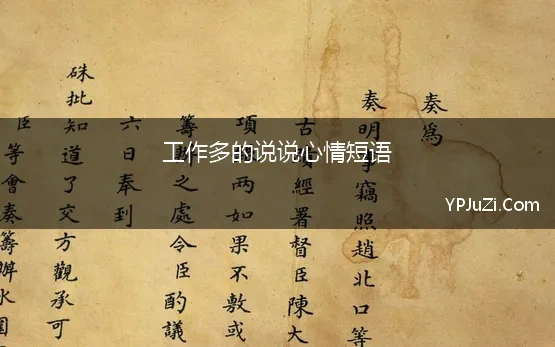 工作多的说说心情短语
YPJuZi.Com
奏為
奏明事竊照趙北口等
古經署督臣陳大
項两如果不敷或
籌之處令臣酌議
六日奉到
硃批知道了交方觀承可
臣等會奏籌辦水圍